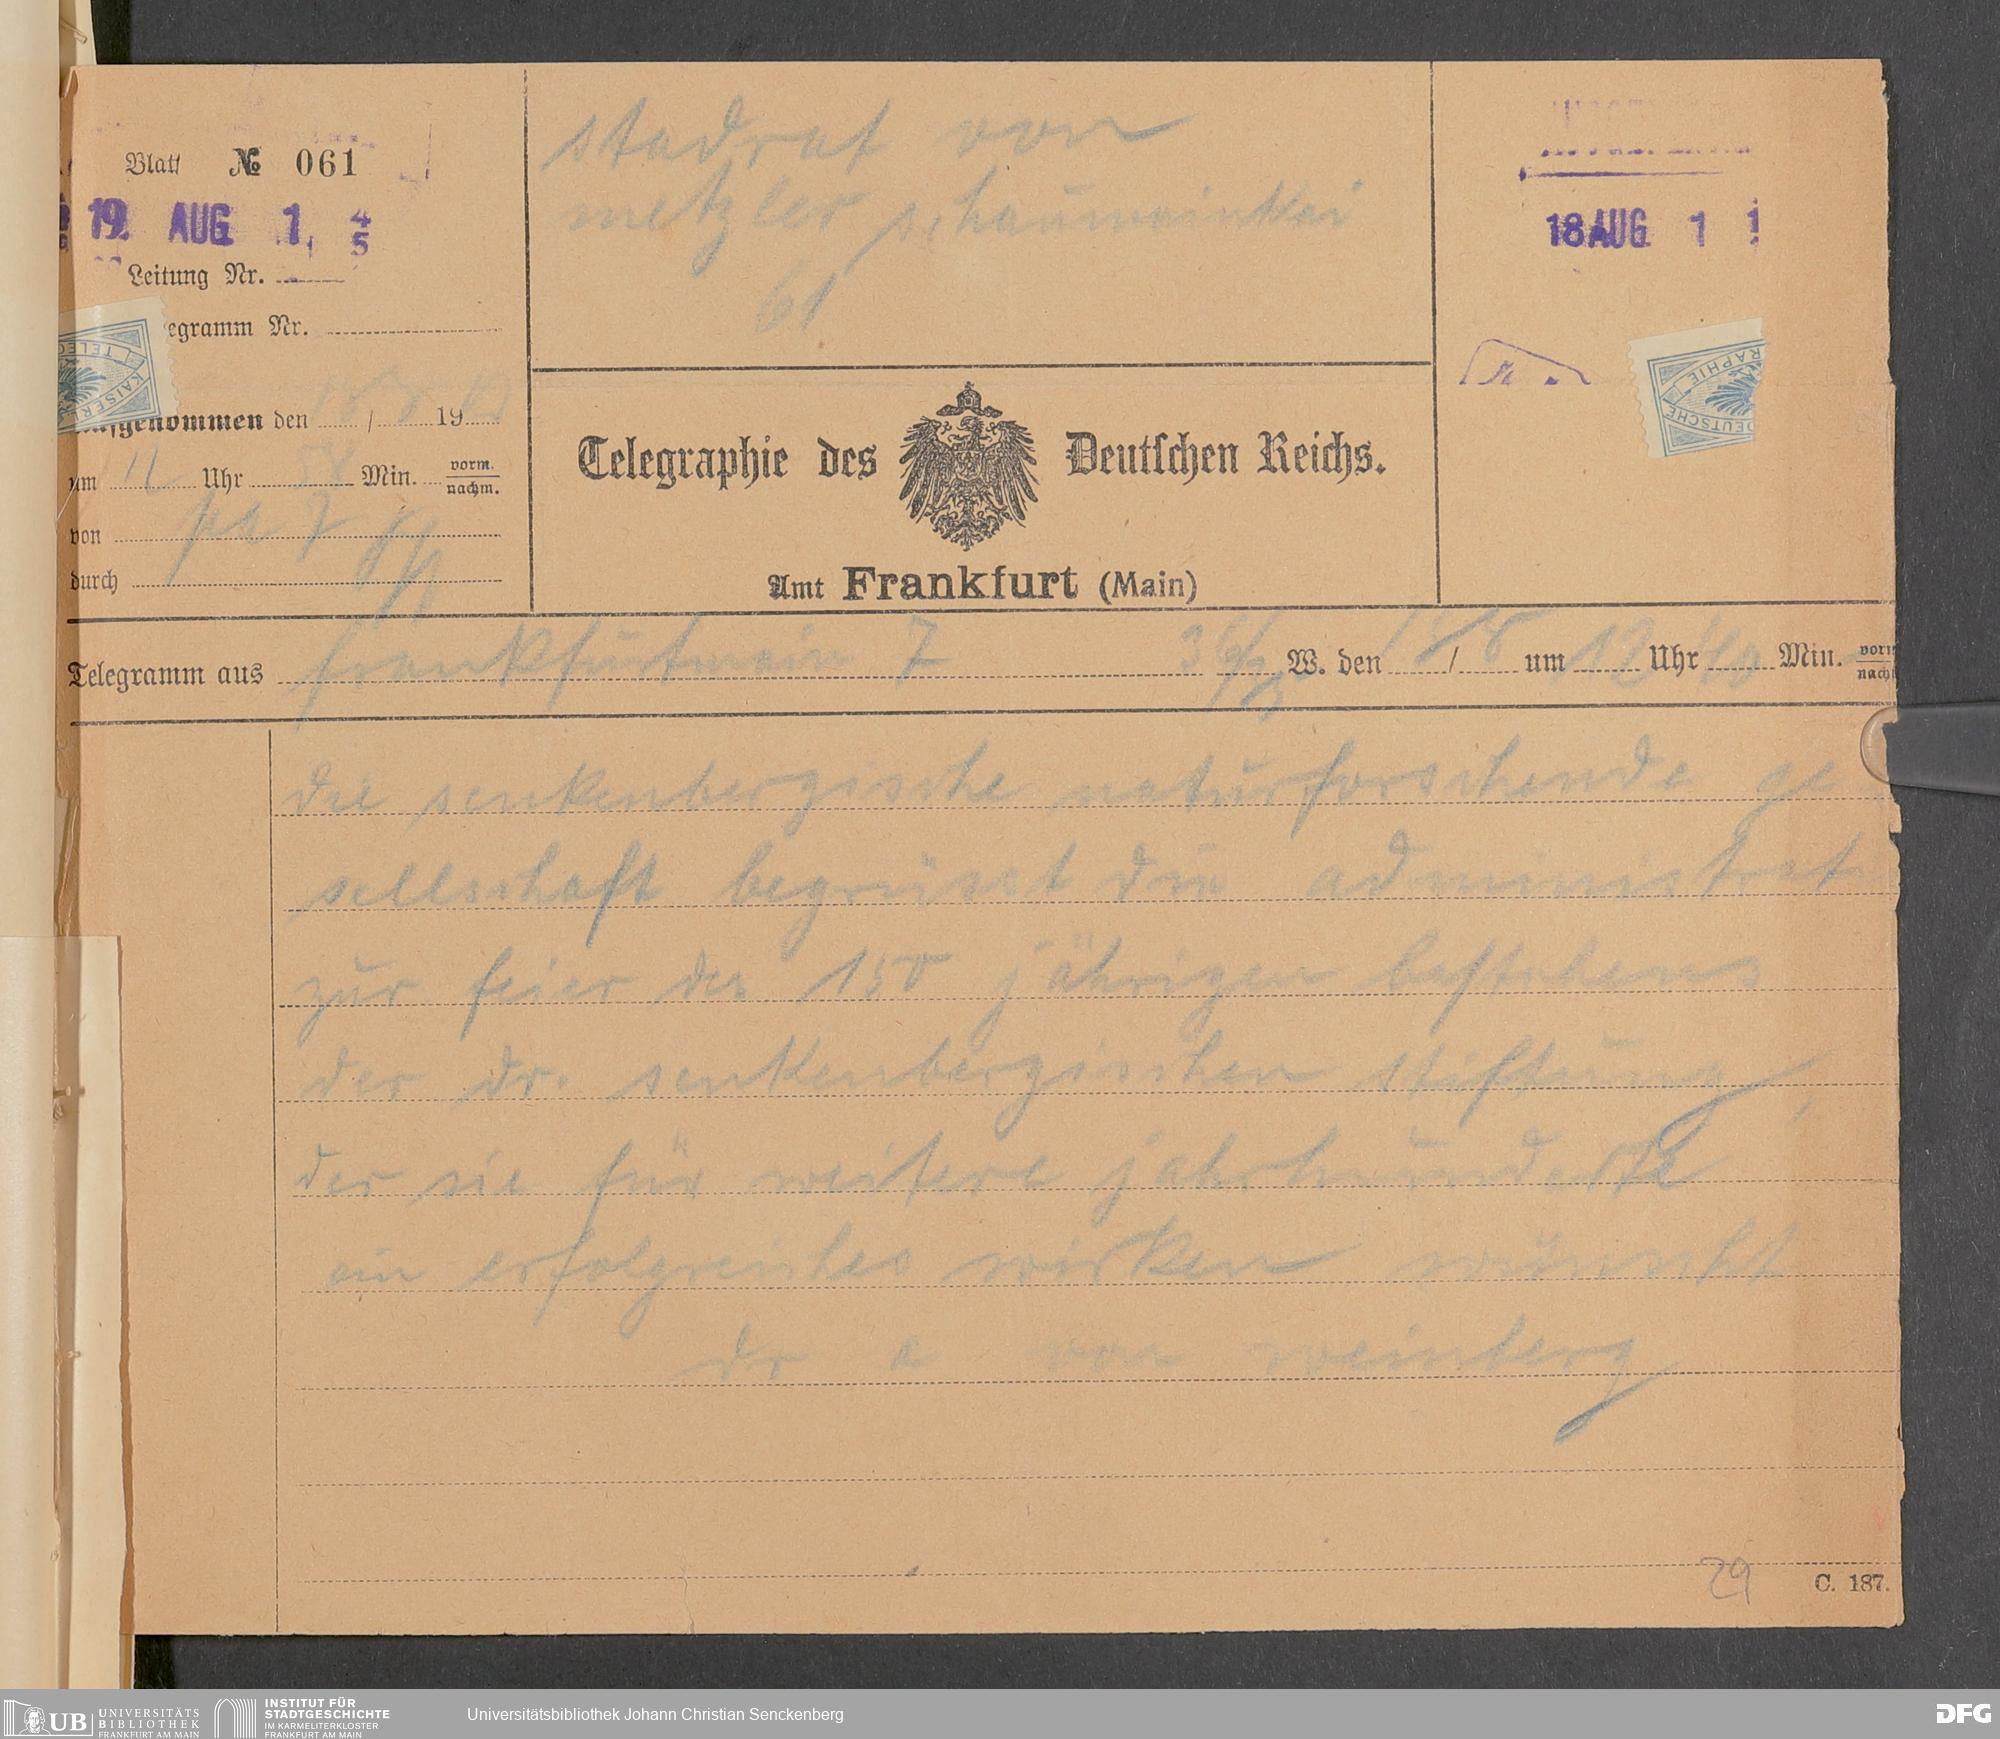 Blatt № 061
19. AUG. 1, 4/5
Leitung Nr.
egramm Nr.
KAISERL
TELEG
aufgenommen den 18/8 19
um 11 Uhr 54 Min. vorm. nachm.
von pa 7
durch
stadrat von
metzler schaumainkai
61
18 AUG 1 1
DEUTSCHE
RAPHIE
Telegraphie des Deutschen Reichs.
Amt Frankfurt (Main)
Telegramm aus frankfurtmain 7 36/35 W. den 18/8 um 12 Uhr 40 Min. vorm nach
die senkenbergische naturforschende ge
sellschaft begrüsst die administrat
zur feier des 150 jährigen bestehens
der dr. senkenbergischen stiftung,
der sie für weitere jahrhunderte
ein erfolgreiches wirken wünscht
dr a von weinberg
29
C. 187.
UB UNIVERSITÄTS
BIBLIOTHEK
FRANKFURT AM MAIN
INSTITUT FÜR
STADTGESCHICHTE
IM KARMELITERKLOSTER
FRANKFURT AM MAIN
Universitätsbibliothek Johann Christian Senckenberg
DFG